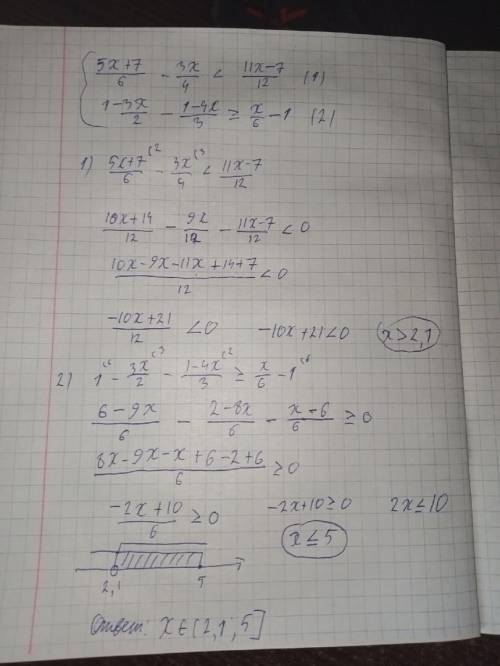 (5x+7)/6 - 3x/4 < (11x-7)/12 (1)
(1-3x)/2 - (1-4x)/3 ≥ x/6 - 1 (2)
1) (5x+7)/6 (2 - 3x/4 (3 < (11x-7)/12
(10x+14)/12 - 9x/12 - (11x-7)/12 < 0
(10x-9x-11x+14+7)/12 < 0
(-10x+21)/12 < 0 -10x+21<0 x>2,1
2) 1 (6 - 3x/2 (3 - (1-4x)/3 (2 ≥ x/6 - 1 (6
(6-9x)/6 - (2-8x)/6 - (x-6)/6 ≥ 0
(8x-9x-x+6-2+6)/6 ≥ 0
(-2x+10)/6 ≥ 0 -2x+10≥0 2x≤10
x≤5
2,1 5
Ответ: x∈(2,1; 5]